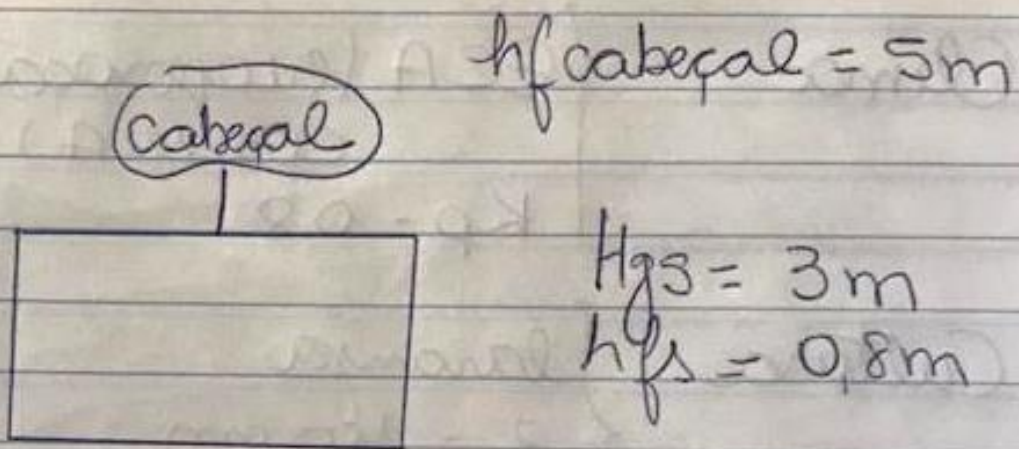 hf cabeçal = 5m
cabeçal
Hgs = 3m
hfs = 0,8m